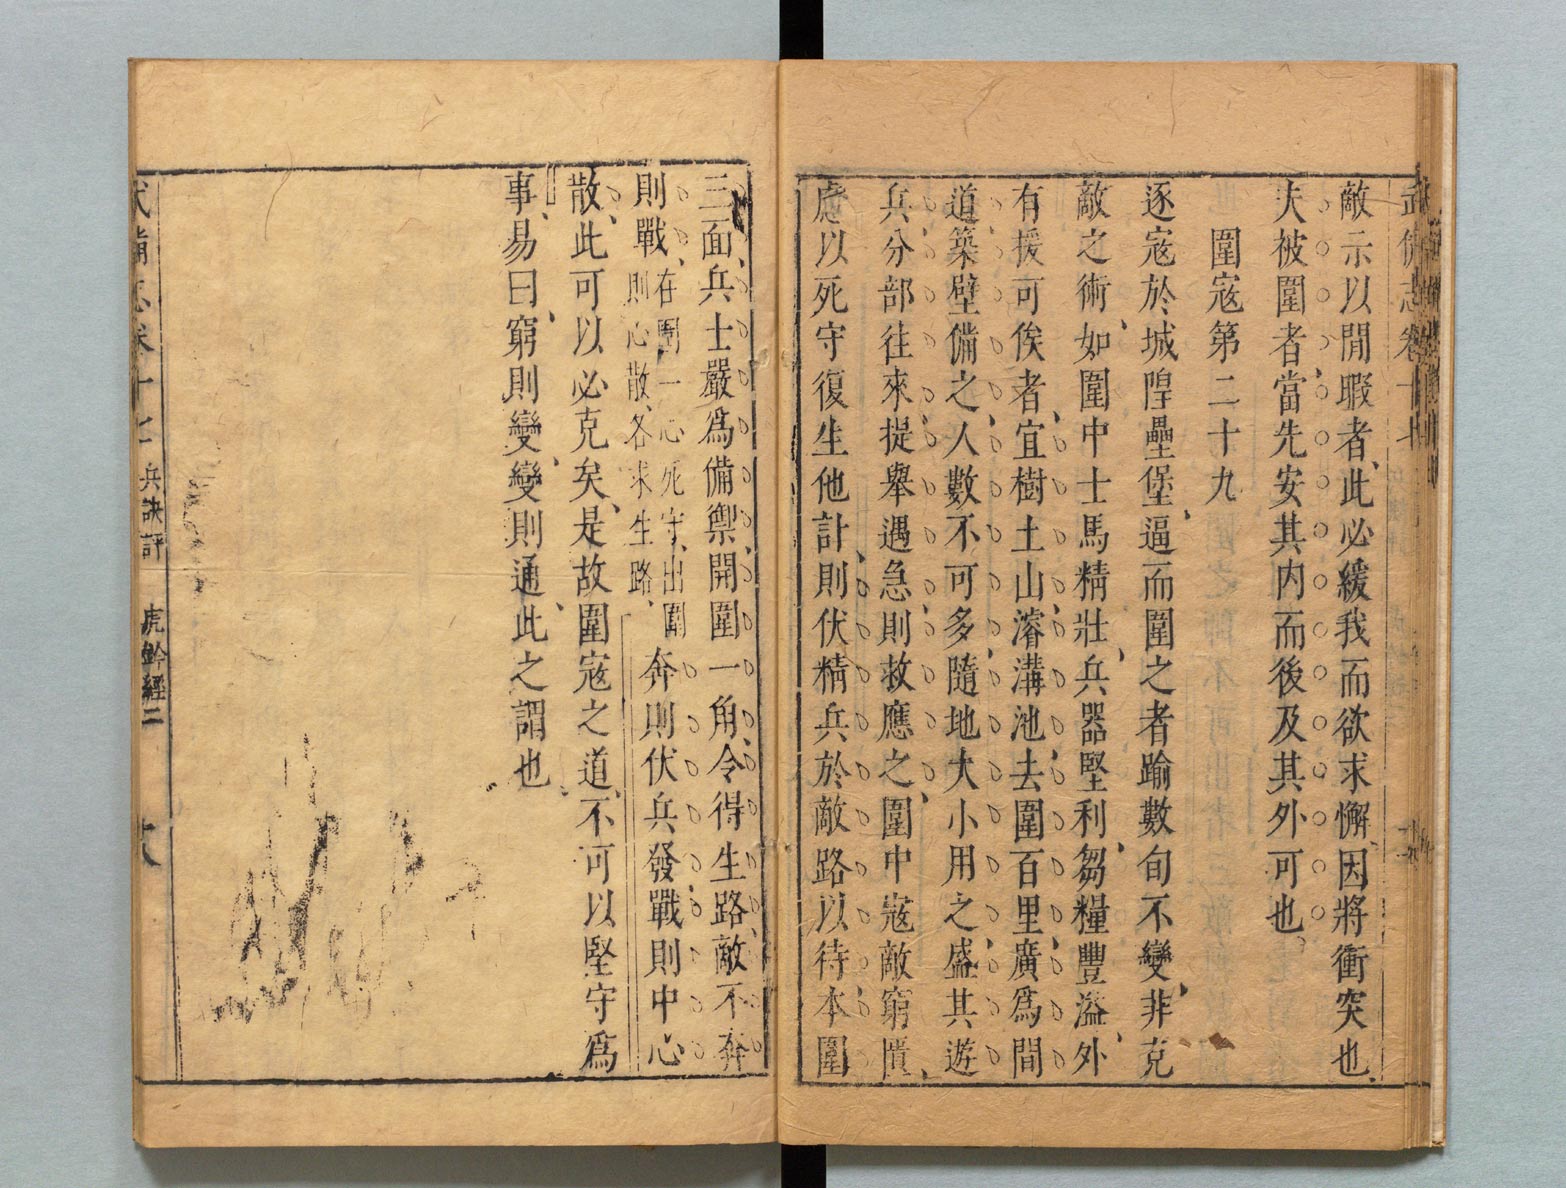 敵示以閒暇者此必緩我而欲求懈因將衝突也
夫被圍者當先安其内而後及其外可也
圍寇第二十九
逐寇於城隍壘堡逼而圍之者踰數旬不變非克
敵之術如圍中士馬精壯兵器堅利芻糧豐溢外
有援可俟者宜樹土山濬溝池去圍百里廣爲間
道築壁備之人數不可多隨地大小用之盛其遊
兵分部往來提舉遇急則救應之圍中寇敵窮匱
慮以死守復生他計則伏精兵於敵路以待本圍
三面兵士嚴爲備禦開圍一角令得生路敵不奔
則戰在圍一心死守出圍則心散各求生路奔則伏兵發戰則中心
散此可以必克矣是故圍寇之道不可以堅守爲
事易曰窮則變變則通此之謂也
兵訣評 虎鈐經二